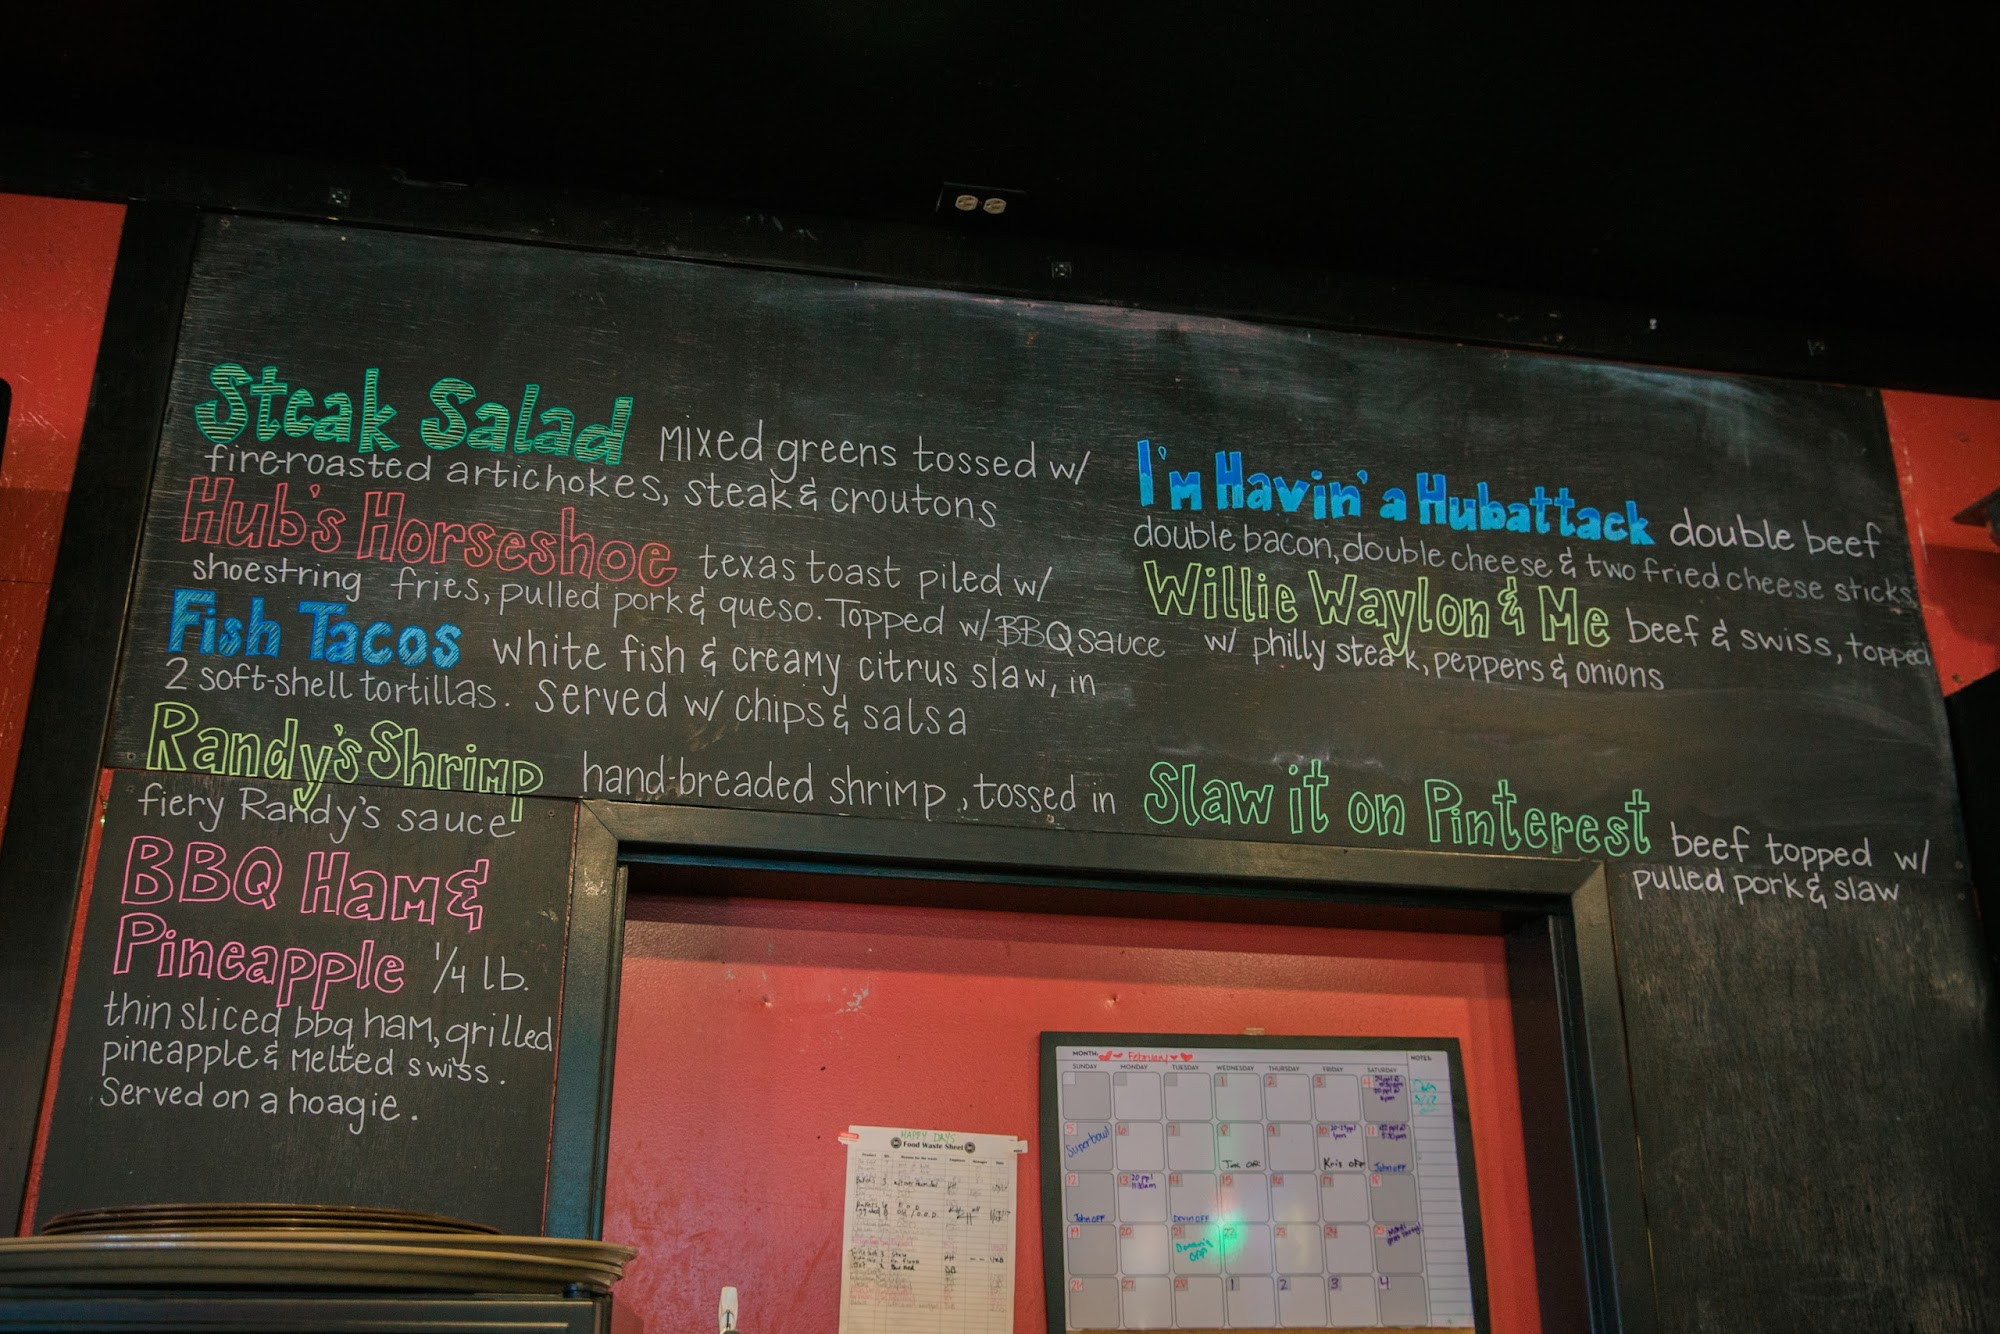 Steak Salad mixed greens tossed w/
fire-roasted artichokes, steak & croutons
Hub's Horseshoe texas toast piled w/
shoestring fries, pulled pork & queso. Topped w/ BBQ sauce
Fish Tacos white fish & creamy citrus slaw, in
2 soft-shell tortillas. Served w/ chips & salsa
Randy's Shrimp hand-breaded shrimp, tossed in
fiery Randy's sauce
BBQ Ham &
Pineapple 1/4 lb.
thin sliced bbq ham, grilled
pineapple & melted swiss.
Served on a hoagie.
I'm Havin' a Hubattack double beef
double bacon, double cheese & two fried cheese sticks
Willie Waylon & Me beef & swiss, topped
w/ philly steak, peppers & onions
Slaw it on Pinterest beef topped w/
pulled pork & slaw
HAPPY DAYS
Food Waste Sheet
MONTH: February NOTES:
SUNDAY MONDAY TUESDAY WEDNESDAY THURSDAY FRIDAY SATURDAY
1 2 3 4
5 6 7 8 9 10 11
Superbowl
Kris OFF John OFF
12 13 14 15 16 17 18
20 ppl
11:30am
John OFF Devin OFF
19 20 21 22 23 24 25
OFF
26 27 28 1 2 3 4